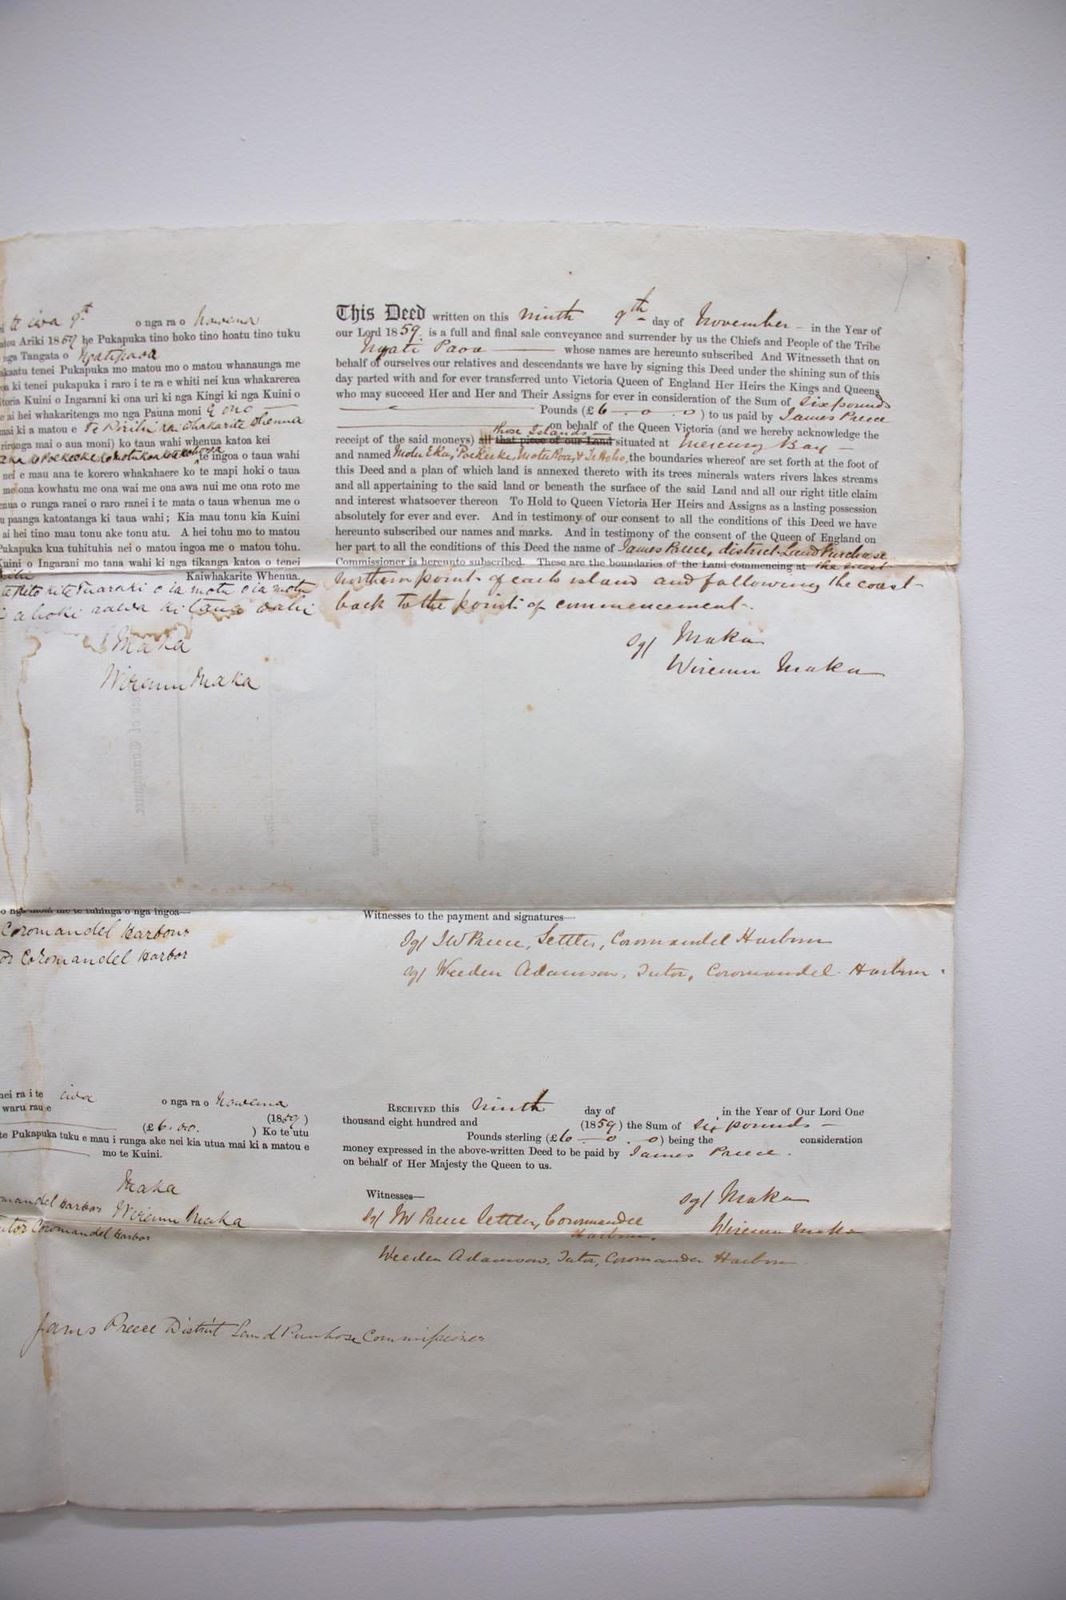 te iwa 9th o nga ra o Nowema
Ariki 1859 he Pukapuka tino hoko tino hoatu tino tuku
nga Tangata o Ngatipaoa
tenei Pukapuka mo matou mo o matou whanaunga me
ki tenei pukapuka i raro i te ra e whiti nei kua whakarerea
Kuini o Ingarani ki ona uri ki nga Kingi ki nga Kuini o
ai hei whakaritenga mo nga Pauna moni e ono
mai ki a matou e Te Pirihi kai whakarite Whenua
mai o aua moni) ko taua wahi whenua katoa kei
te ingoa o taua wahi
nei e mau ana te korero whakahaere ko te mapi hoki o taua
me ona kowhatu me ona wai me ona awa nui me ona roto me
o runga ranei o raro ranei i te mata o taua whenua me o
paanga katoatanga ki taua wahi; Kia mau tonu kia Kuini
ai hei tino mau tonu ake tonu atu. A hei tohu mo to matou
Pukapuka kua tuhituhia nei o matou ingoa me o matou tohu.
Kuini o Ingarani mo tana wahi ki nga tikanga katoa o tenei
Kaiwhakarite Whenua.
o ia motu o ia motu
a hoki aawa ki taua wahi
Maka
Wiremu Maka
o nga moni me te tuhinga o nga ingoa—
Coromandel Harbour
Coromandel Harbor
nei ra i te iwa o nga ra o Nowema
waru rau e (1859)
(£6.0.0. ) Ko te utu
te Pukapuka tuku e mau i runga ake nei kia utua mai ki a matou e
mo te Kuini.
Maka
Harbor Wiremu Maka
Coromandel Harbor
This Deed written on this ninth 9th day of November in the Year of
our Lord 1859. is a full and final sale conveyance and surrender by us the Chiefs and People of the Tribe
Ngati Paoa whose names are hereunto subscribed And Witnesseth that on
behalf of ourselves our relatives and descendants we have by signing this Deed under the shining sun of this
day parted with and for ever transferred unto Victoria Queen of England Her Heirs the Kings and Queens
who may succeed Her and Her and Their Assigns for ever in consideration of the Sum of Six pounds
Pounds (£6 . 0 . 0) to us paid by James Preece
on behalf of the Queen Victoria (and we hereby acknowledge the
those Islands
receipt of the said moneys) all that piece of our Land situated at Mercury Bay
and named Motu Eka, Pokeeke, Motu Koru, & Te Hoho, the boundaries whereof are set forth at the foot of
this Deed and a plan of which land is annexed thereto with its trees minerals waters rivers lakes streams
and all appertaining to the said land or beneath the surface of the said Land and all our right title claim
and interest whatsoever thereon To Hold to Queen Victoria Her Heirs and Assigns as a lasting possession
absolutely for ever and ever. And in testimony of our consent to all the conditions of this Deed we have
hereunto subscribed our names and marks. And in testimony of the consent of the Queen of England on
her part to all the conditions of this Deed the name of James Preece, district Land Purchase
Commissioner is hereunto subscribed. These are the boundaries of the Land commencing at the most
Northern point of each island and following the coast
back to the point of commencement.
Sg/ Maka
Wiremu Maka
Witnesses to the payment and signatures—
Sg/ JW Preece, Settler, Coromandel Harbour
Sg/ Weeden Adamson, Tutor, Coromandel Harbour.
Received this Ninth day of , in the Year of Our Lord One
thousand eight hundred and (1859) the Sum of Six pounds
Pounds sterling (£6 . 0 . 0) being the consideration
money expressed in the above-written Deed to be paid by James Preece.
on behalf of Her Majesty the Queen to us.
Witnesses— Sg/ Maka
Sg/ JW Preece Settler, Coromandel Wiremu Maka
Harbour.
Weeden Adamson, Tutor, Coromandel Harbour
James Preece District Land Purchase Commissioner